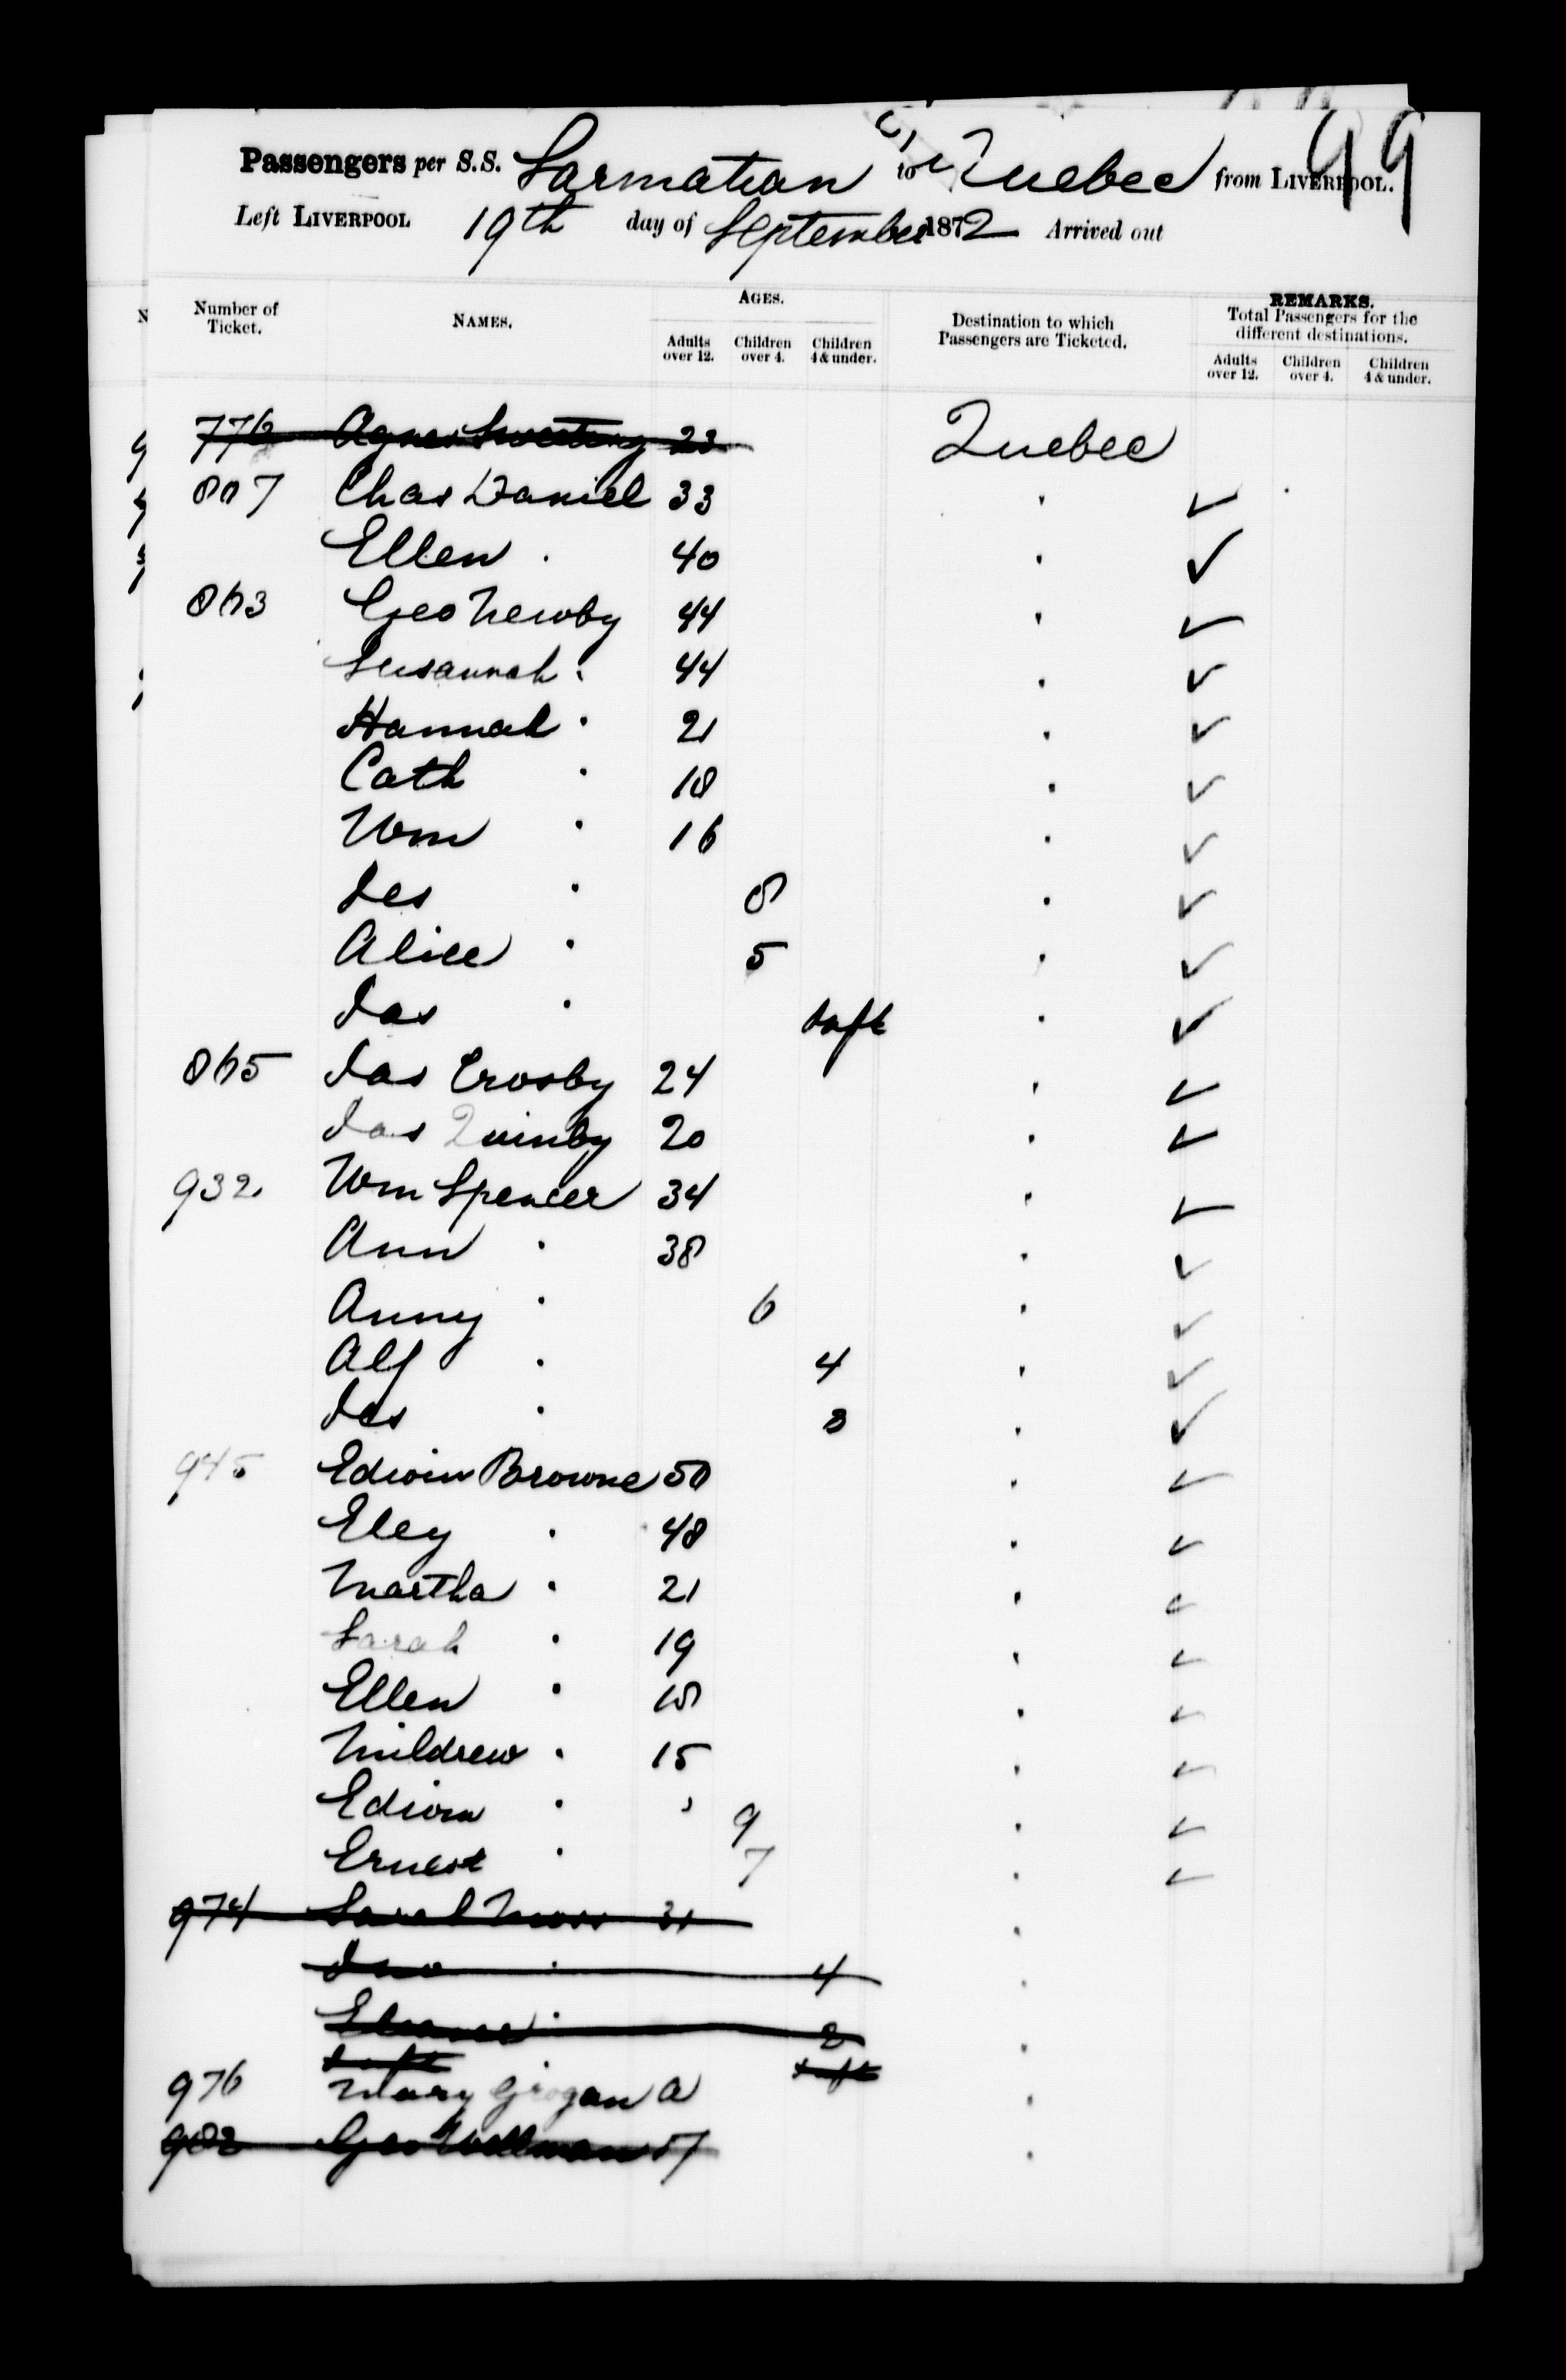 99
Passengers per S.S. Sarmatian to Quebec from LIVERPOOL.
Left LIVERPOOL 19th day of September 1872 Arrived out
Number of Ticket. NAMES. AGES. Destination to which Passengers are Ticketed. REMARKS. Total Passengers for the different destinations.
Adults over 12. Children over 4. Children 4 & under. Adults over 12. Children over 4. Children 4 & under.
776 Agnes Sweeting 23 Quebec
807 Chas Daniel 33 " ✓
Ellen " 40 " ✓
863 Geo Newby 44 " ✓
Susannah " 44 " ✓
Hannah " 21 " ✓
Cath " 18 " ✓
Wm " 16 " ✓
Jes " 8 " ✓
Alice " 5 " ✓
Jas " Inft " ✓
865 Jas Crosby 24 " ✓
Jas Quinby 20 " ✓
932 Wm Spencer 34 " ✓
Ann " 38 " ✓
Anny " 6 " ✓
Alf " 4 " ✓
Jas " 3 " ✓
945 Edwin Browne 50 " ✓
Eley " 48 " ✓
Martha " 21 " ✓
Sarah " 19 " ✓
Ellen " 18 " ✓
Mildrew " 15 " ✓
Edwin " 9 " ✓
Ernest " 7 " ✓
974 Sarah Moss 31 "
Jno " 4 "
Eleanor " 2 "
Inft " Inft
976 Mary Grogan A "
Geo Wellman 57 "